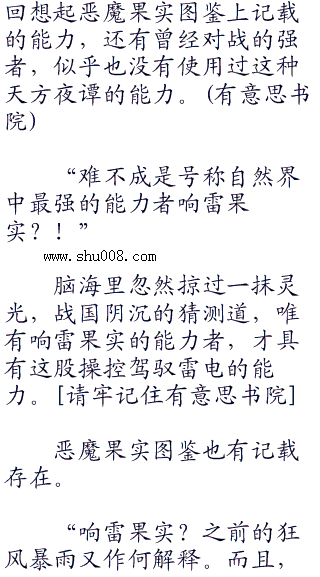 回想起恶魔果实图鉴上记载
的能力，还有曾经对战的强
者，似乎也没有使用过这种
天方夜谭的能力。(有意思书
院)
“难不成是号称自然界
中最强的能力者响雷果
实？！”
www.shu008.com
脑海里忽然掠过一抹灵
光，战国阴沉的猜测道，唯
有响雷果实的能力者，才具
有这股操控驾驭雷电的能
力。[请牢记住有意思书院]
恶魔果实图鉴也有记载
存在。
“响雷果实？之前的狂
风暴雨又作何解释。而且，